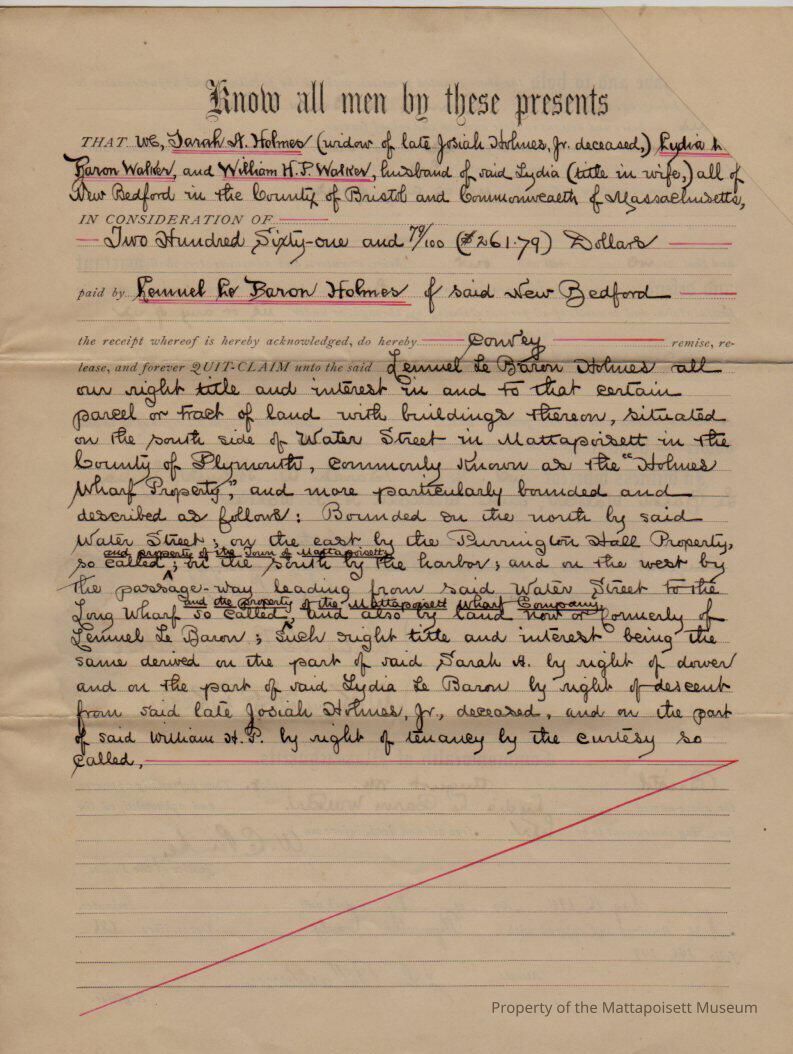 Know all men by these presents
THAT We, Sarah A. Holmes (widow of late Josiah Holmes, Jr. deceased,) Lydia Le
Baron Walker, and William H. P. Walker, husband of said Lydia (title in wife,) all of
New Bedford in the County of Bristol and Commonwealth of Massachusetts,
IN CONSIDERATION OF
Two Hundred Sixty-one and 79/100 ($261.79) Dollars
paid by Lemuel Le Baron Holmes of said New Bedford
the receipt whereof is hereby acknowledged, do hereby convey remise, re-
lease, and forever QUIT-CLAIM unto the said Lemuel Le Baron Holmes all
our right title and interest in and to that certain
parcel or tract of land with buildings thereon, situated
on the south side of Water Street in Mattapoisett in the
County of Plymouth, commonly known as the "Holmes
Wharf Property", and more particularly bounded and
described as follows: Bounded on the north by said
Water Street; on the east by the Purrington Hall Property,
and property of the Town of Mattapoisett
so called; on the south by the harbor; and on the west by
the passage-way leading from said Water Street to the
and the property of the Mattapoisett Wharf Company,
Long Wharf so called, and also by land now or formerly of
Lemuel Le Baron; Such right title and interest being the
same derived on the part of said Sarah A. by right of dower
and on the part of said Lydia Le Baron by right of descent
from said late Josiah Holmes, Jr., deceased, and on the part
of said William H. P. by right of tenancy by the curtesy so
called,
Property of the Mattapoisett Museum